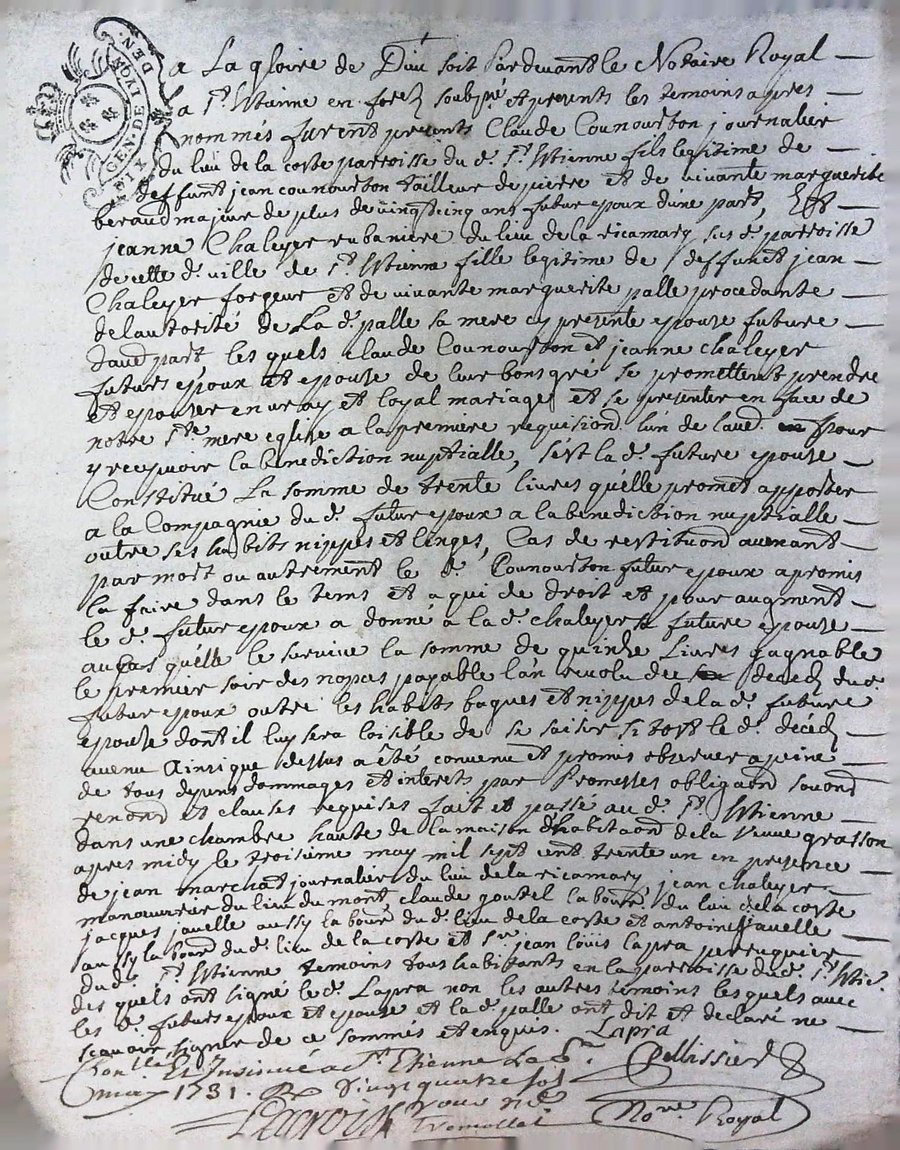 GEN. DE LYON
SIX DEN.
a La gloire de Dieu soit Pardevant le Notaire Royal
a St Etienne en forez soubzne et presents les temoins apres
nommés furent presents Claude Counourdon journalier
du lieu de la coste parroisse du d. St Etienne fils legitime de
deffunt jean counourdon tailleur de pierre et de vivante marguerite
beraud majeur de plus de vingt cinq ans futur epoux d'une part, Et
jeanne Chaleyer rubaniere du lieu de la ricamary sus d. parroisse
de cette d. ville de St Etienne fille legitime de deffunct jean
Chaleyer forgeur et de vivante marguerite palle procedante
de l'autorité de La d. palle sa mere cy presente epouse future
d'aud. part les quels Claude Counourdon et jeanne chaleyer
futurs epoux et epouse de leur bon gré se promettent prendre
et epouser en vray et loyal mariage et se presenter en face de
notre Ste mere eglise a la premiere requision l'un de laud. pour
y recepvoir la benediction nuptialle, s'est la d. future epouse
Constitué La somme de trente livres qu'elle promet apporter
a la Compagnie du d. futur epoux a la benediction nuptialle
outre ses habits nippes et linges, Cas de restituond avenant
par mort ou autrement le d. Counourdon futur epoux a promis
la faire dans le tems et a qui de droit et pour augment
le d. futur epoux a donné a la d. chaleyer sa future epouse
au Cas qu'elle le survive la somme de quinze Livres gagnable
le premier soir des nopces payable l'an revolu du decedz du d.
futur epoux outre les habits bagues et nippes de la d. future
epouse dont il luy sera loisible de se saisir si tost le d. décédz
avenu Ainsi que dessus a été convenu et promis observer a peine
de tous depens dommages et interets par Promesses obligaond soumond
renond et clauses requises fait et passé au d. St Etienne
dans une chambre haute de la maison d'habitaond de la veuve grasson
apres midy le troisieme may mil sept cent trente un en presence
de jean marchat journalier du lieu de la ricamary jean chaleyer
manoeuvrier du lieu du mont, claude goutel labour. du lieu de la coste
jacques javelle aussy labour du d. lieu de la coste et antoine javelle
aussy labour du d. lieu de la coste et Sr. jean loüis lapra perruquier
du d. St Etienne temoins tous habitants en la parroisse du d. St Etie.
des quels ont signé le d. Lapra non les autres temoins lesquels avec
les d. futurs epoux et epouse et la d. palle ont dit et declaré ne
scavoir signer de ce sommés et enquis. Lapra
Contllé Et Insinué a St Etienne La
may 1731. R Vingt quatre sols
Pellissier
Lacroix
Nore Royal